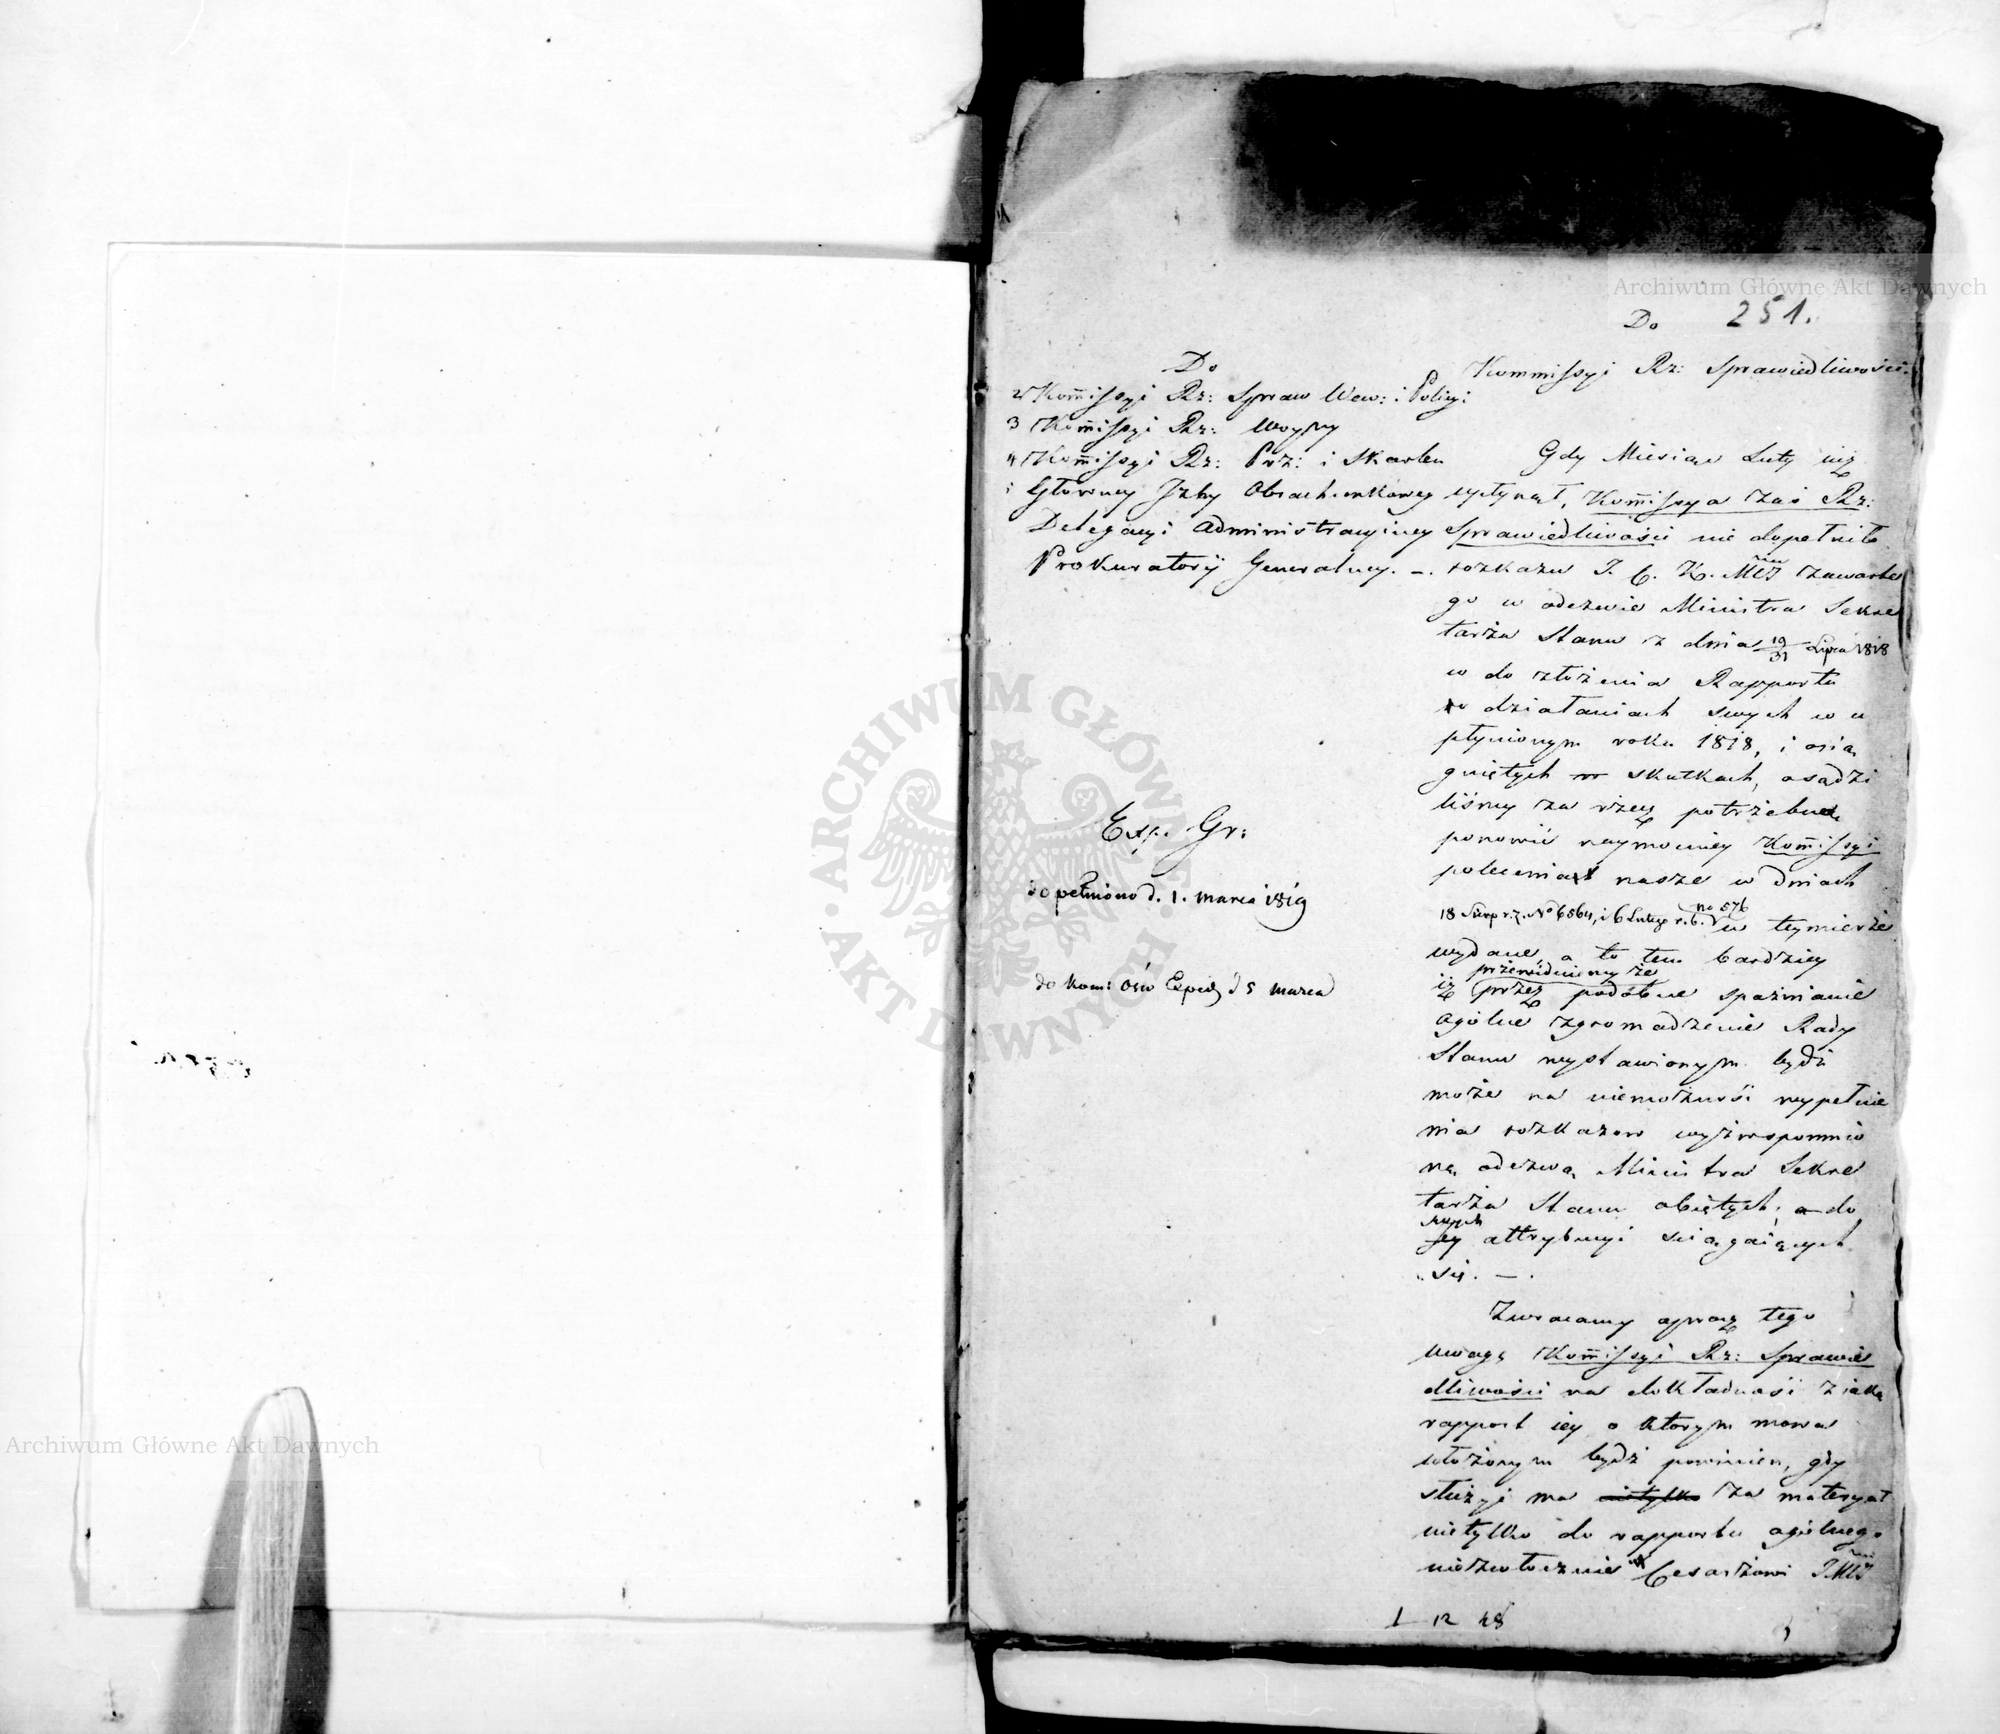 251.
Do
Kommissyi Rz: Sprawiedliwości.
Do
2 Kom̄issyi Rz: Spraw Wew: i Policyi
3 Kom̄issyi Rz: Woyny
4 Kom̄issyi Rz: Prz: i Skarbu
Główney Izby Obrachunkowey
Delegacyi Administracyiney
Prokuratoryi Generalney. —.
Exp. Gr:
dopełniono d. 1. marca 1819
do Kom: Ośw Exped d 5 marca
Gdy Miesiąc Luty iuż
upłynął, Kom̄issya zaś Rz:
Sprawiedliwości nie dopełniła
rozkazu J. C. K. Mci zawarte
go w odezwie Ministra Sekre
tarza Stanu z dnia 19/31 Lipca 1818
w do złożenia Rapportu
o działaniach swych w u
płynionym roku 1818, i osią
gniętych skutkach, osądzi
liśmy za rzecz potrzebną
ponowić naymocniey Kom̄issyi
polecenia nasze w dniach
18 Sierp r.z. No 6564, i 6 Lutego r.b. no 576 w teymierze
wydane, a to tem bardziey
przewiduiemy że
iż przez podobne spaźnianie
ogólne zgromadzenie Rady
Stanu wystawionym bydź
może na niemożność wypełnie
nia rozkazow wyżwspomnio
ną odezwą Ministra Sekre
tarza Stanu obiętych, a do
swych
iey attrybucyi sciągaiących
się. —.
Zwracamy oprocz tego
uwagę Kom̄issyi Rz: Sprawie
dliwości na dokładność z iaką
rapport iey o ktorym mowa
ułożonym bydź powinien, gdy
służyć ma nietylko za materyał
nietylko do rapportu ogólnego
niezwłocznie Cesarzowi J.Mci
1 12 48
Archiwum Główne Akt Dawnych
ARCHIWUM GŁÓWNE
AKT DAWNYCH
Archiwum Główne Akt Dawnych